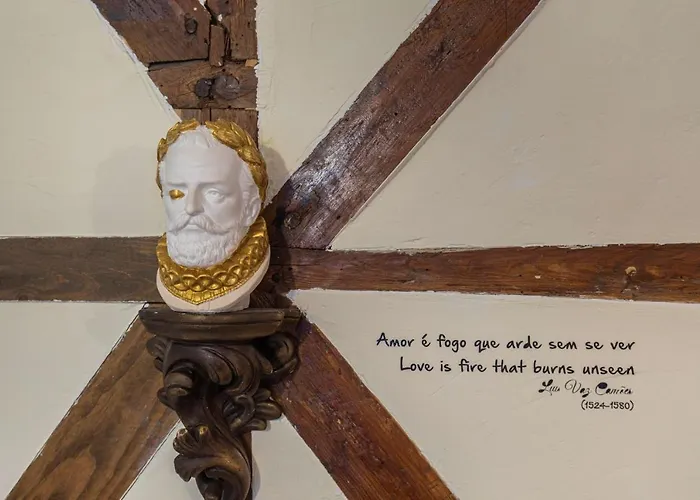 Amor é fogo que arde sem se ver
Love is fire that burns unseen
Luis Vaz Camões
(1524-1580)